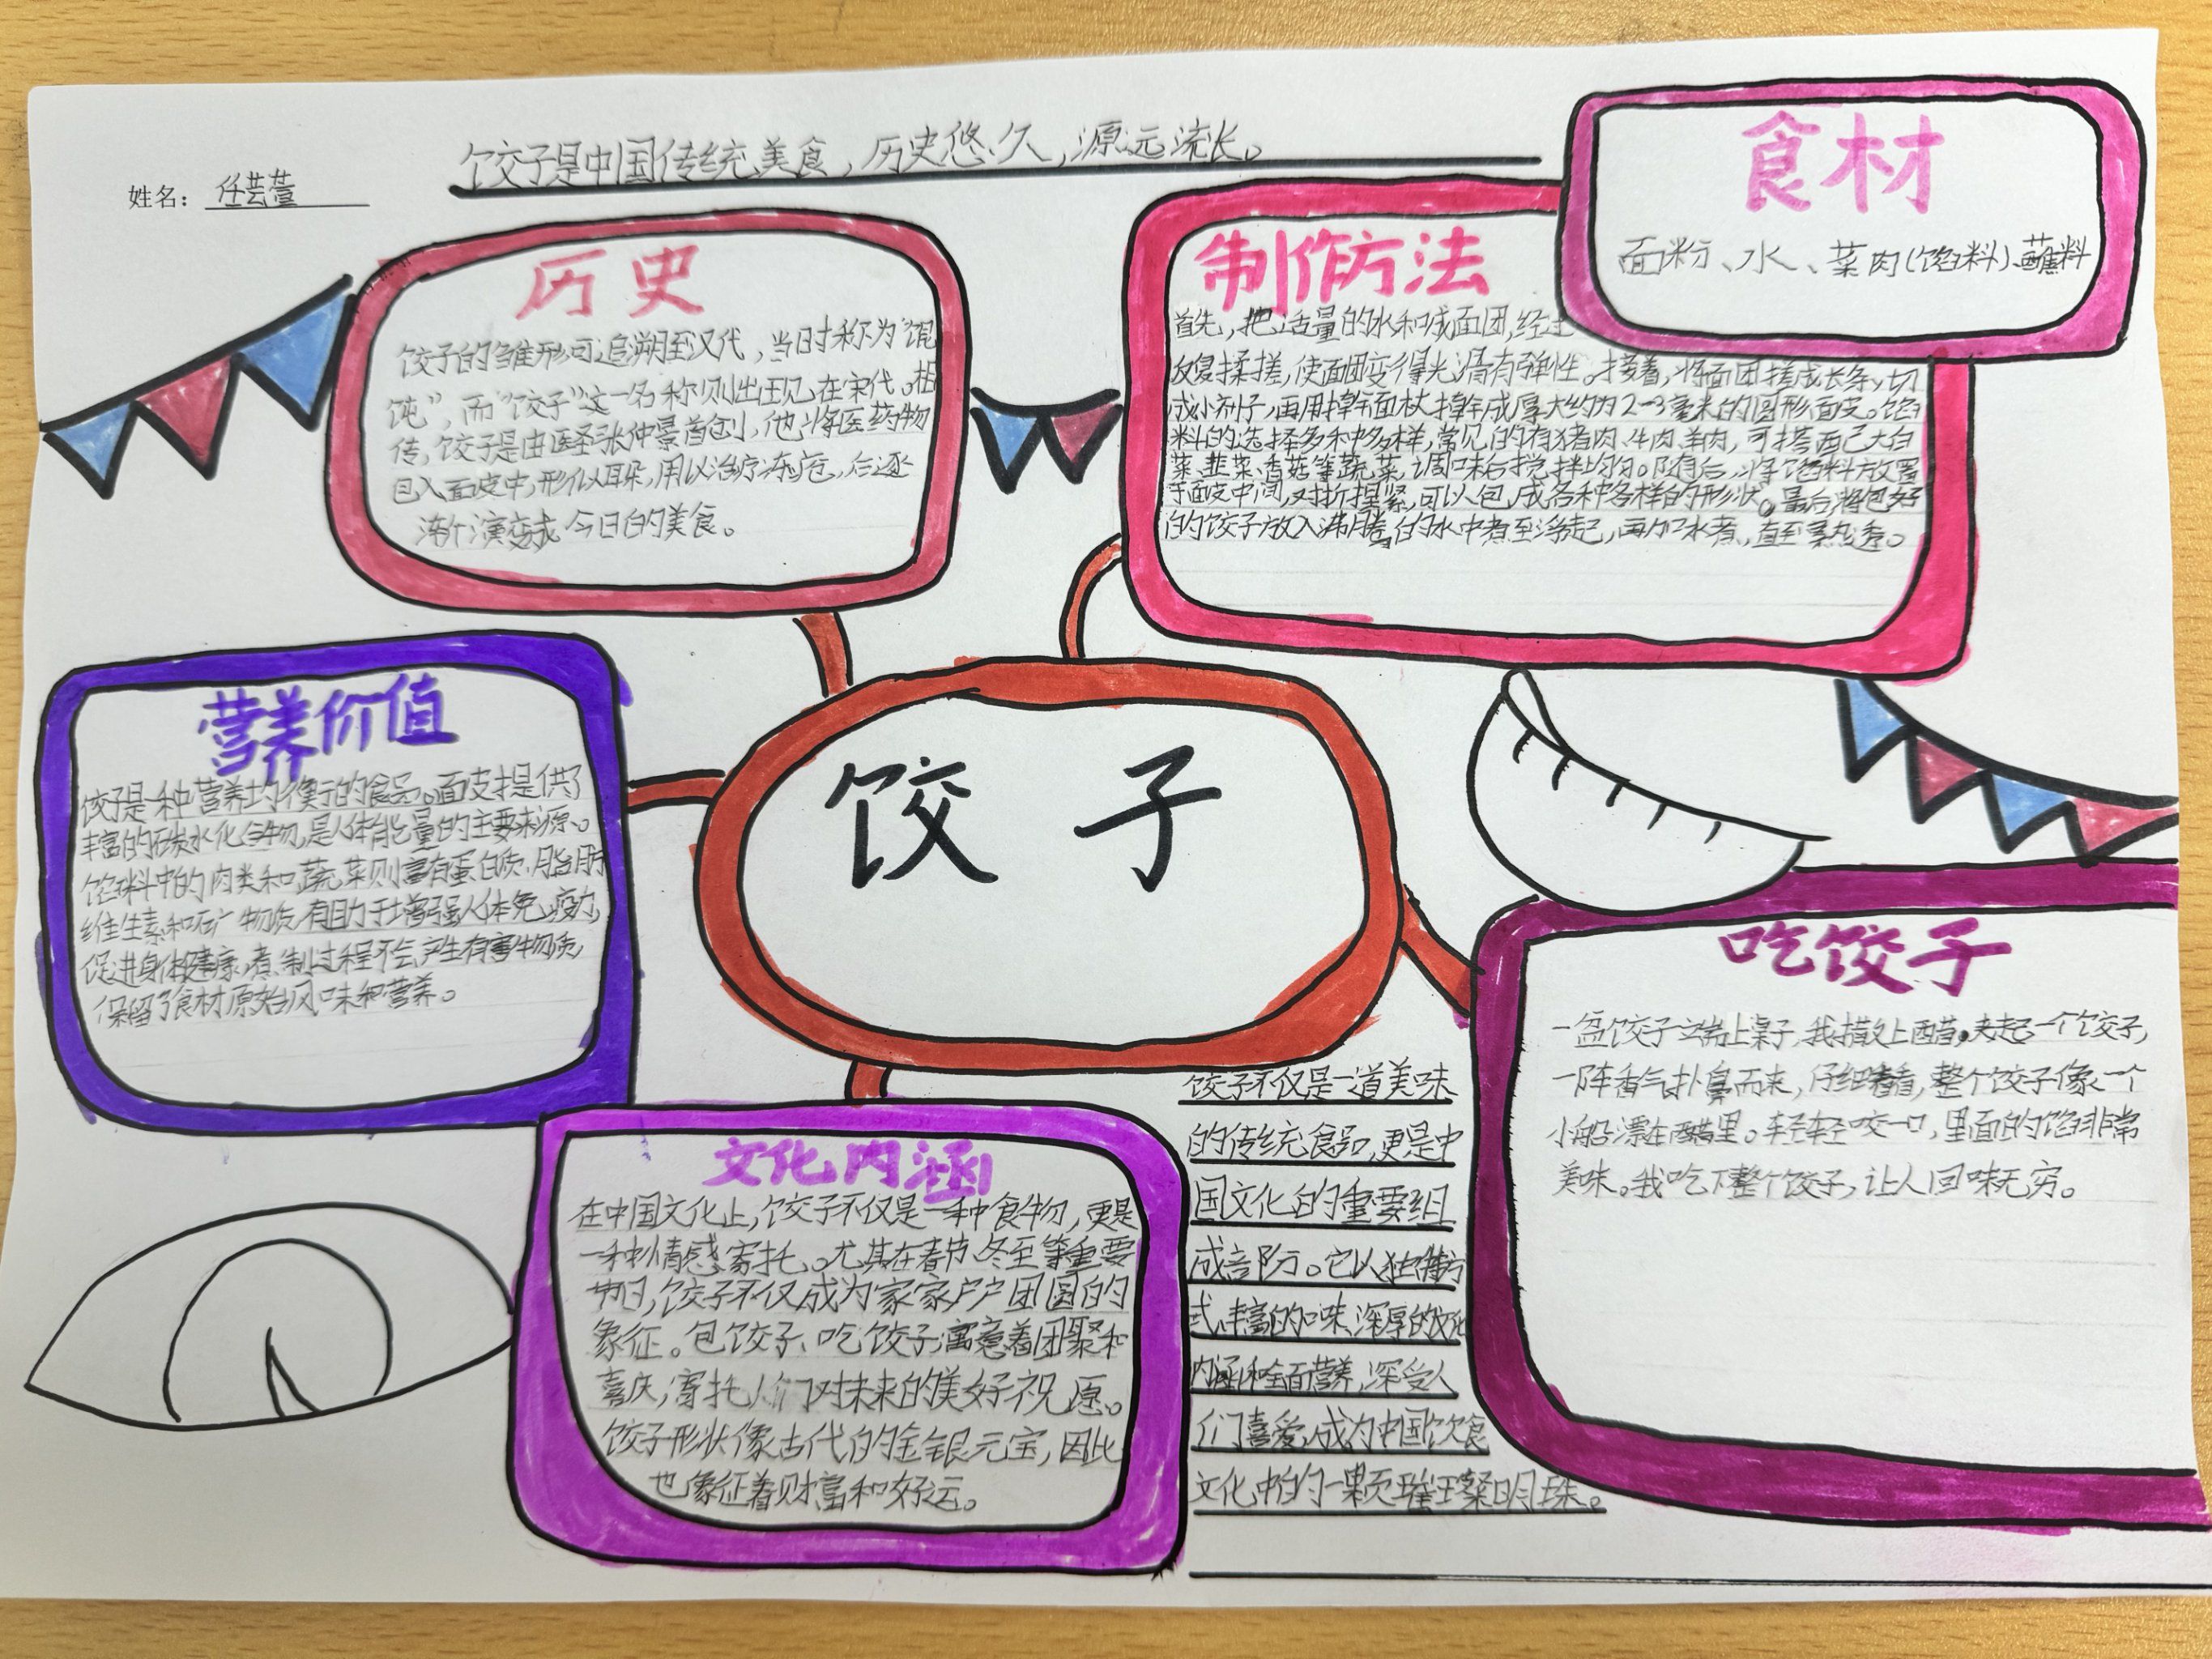 饺子是中国传统美食，历史悠久，源远流长。
姓名：任芸萱
历史
饺子的雏形可追溯至汉代，当时称为“馄
饨”，而“饺子”这一名称则出现在宋代。相
传，饺子是由医圣张仲景首创，他将医药物
包入面皮中，形似耳朵，用以治疗冻疮，后逐
渐演变成今日的美食。
制作方法
首先，把适量的水和成面团，经过
反复揉搓，使面团变得光滑有弹性。接着，将面团搓成长条，切
成小剂子，再用擀面杖擀成厚大约为2-3毫米的圆形面皮。馅
料的选择多种多样，常见的有猪肉、牛肉、羊肉，可搭配大白
菜、韭菜、香菇等蔬菜，调味后搅拌均匀。随后，将馅料放置
于面皮中间，对折捏紧，可以包成各种各样的形状。最后，将包好
的饺子放入沸腾的水中煮至浮起，再加水煮，直至熟透。
食材
面粉、水、菜肉(馅料)、蘸料
营养价值
饺子是一种营养均衡的食品。面皮提供了
丰富的碳水化合物，是人体能量的主要来源。
馅料中的肉类和蔬菜则富有蛋白质、脂肪
维生素和矿物质，有助于增强人体免疫力，
促进身体健康，煮制过程不会产生有害物质
保留了食材原始风味和营养。
饺子
吃饺子
一盆饺子端上桌子，我撒上醋。夹起一个饺子，
一阵香气扑鼻而来，仔细看看，整个饺子像一个
小船漂在醋里。轻轻咬一口，里面的馅非常
美味。我吃下整个饺子，让人回味无穷。
文化内涵
在中国文化上，饺子不仅是一种食物，更是
一种情感寄托。尤其在春节、冬至等重要
节日，饺子不仅成为家家户户团圆的
象征。包饺子、吃饺子寓意着团聚和
喜庆，寄托人们对未来的美好祝愿。
饺子形状像古代的金银元宝，因此
也象征着财富和好运。
饺子不仅是一道美味
的传统食品，更是中
国文化的重要组
成部分。它以独特方
式、丰富的口味、深厚的文化
内涵和全面营养，深受人
们喜爱，成为中国饮食
文化中的一颗璀璨明珠。